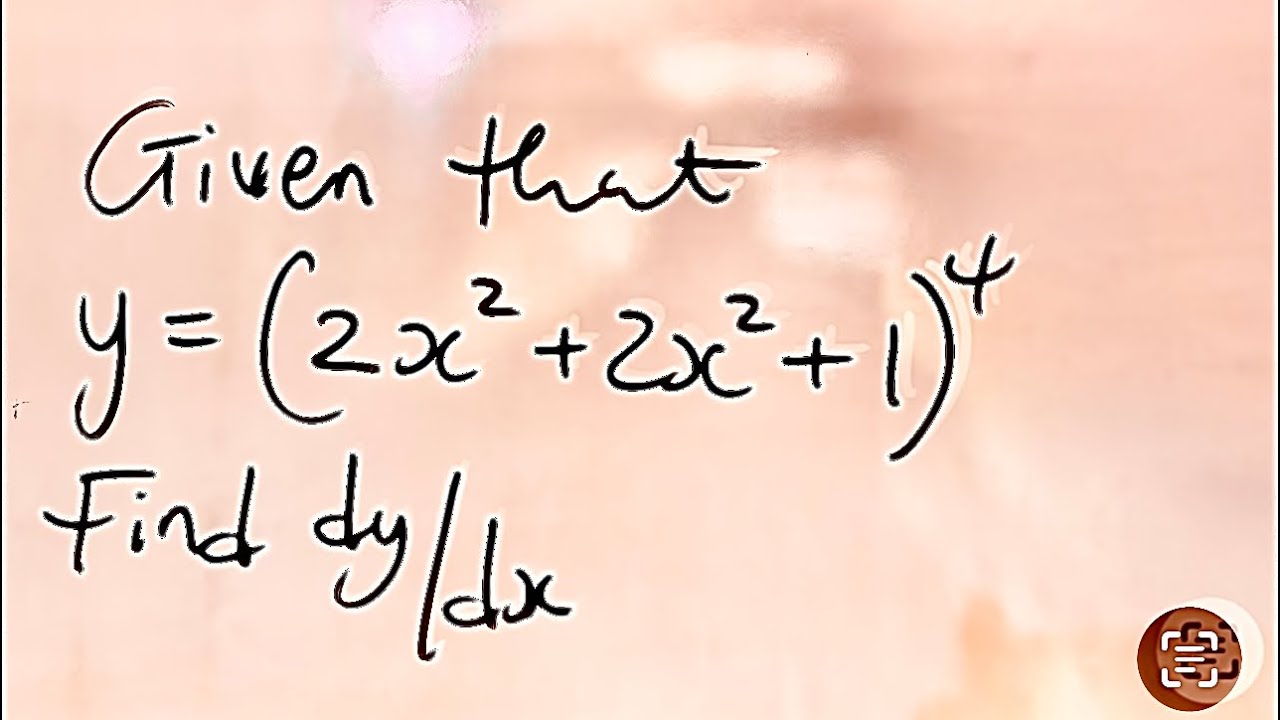 Given that
y = (2x² + 2x² + 1)⁴
Find dy/dx